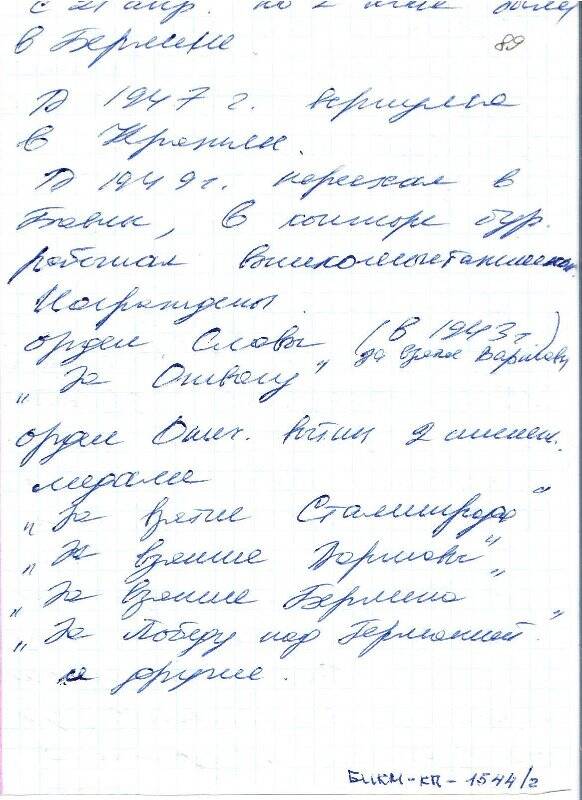 с 21 апр. по 2 мая были
в Берлине
89
В 1947 г. вернулся
в
В 1949 г. переехал в
Бавлы, в конторе бур.
работал вышкомонтажником.
Награждены
орден Славы (в 1943 г)
за взятие Варшавы
"За Отвагу"
орден Отеч. войны 2 степен.
медали
"За взятие Сталинграда"
"За взятие Варшавы"
"За взятие Берлина"
"За Победу над Германией"
и другие.
БИКМ-КП-1544/2